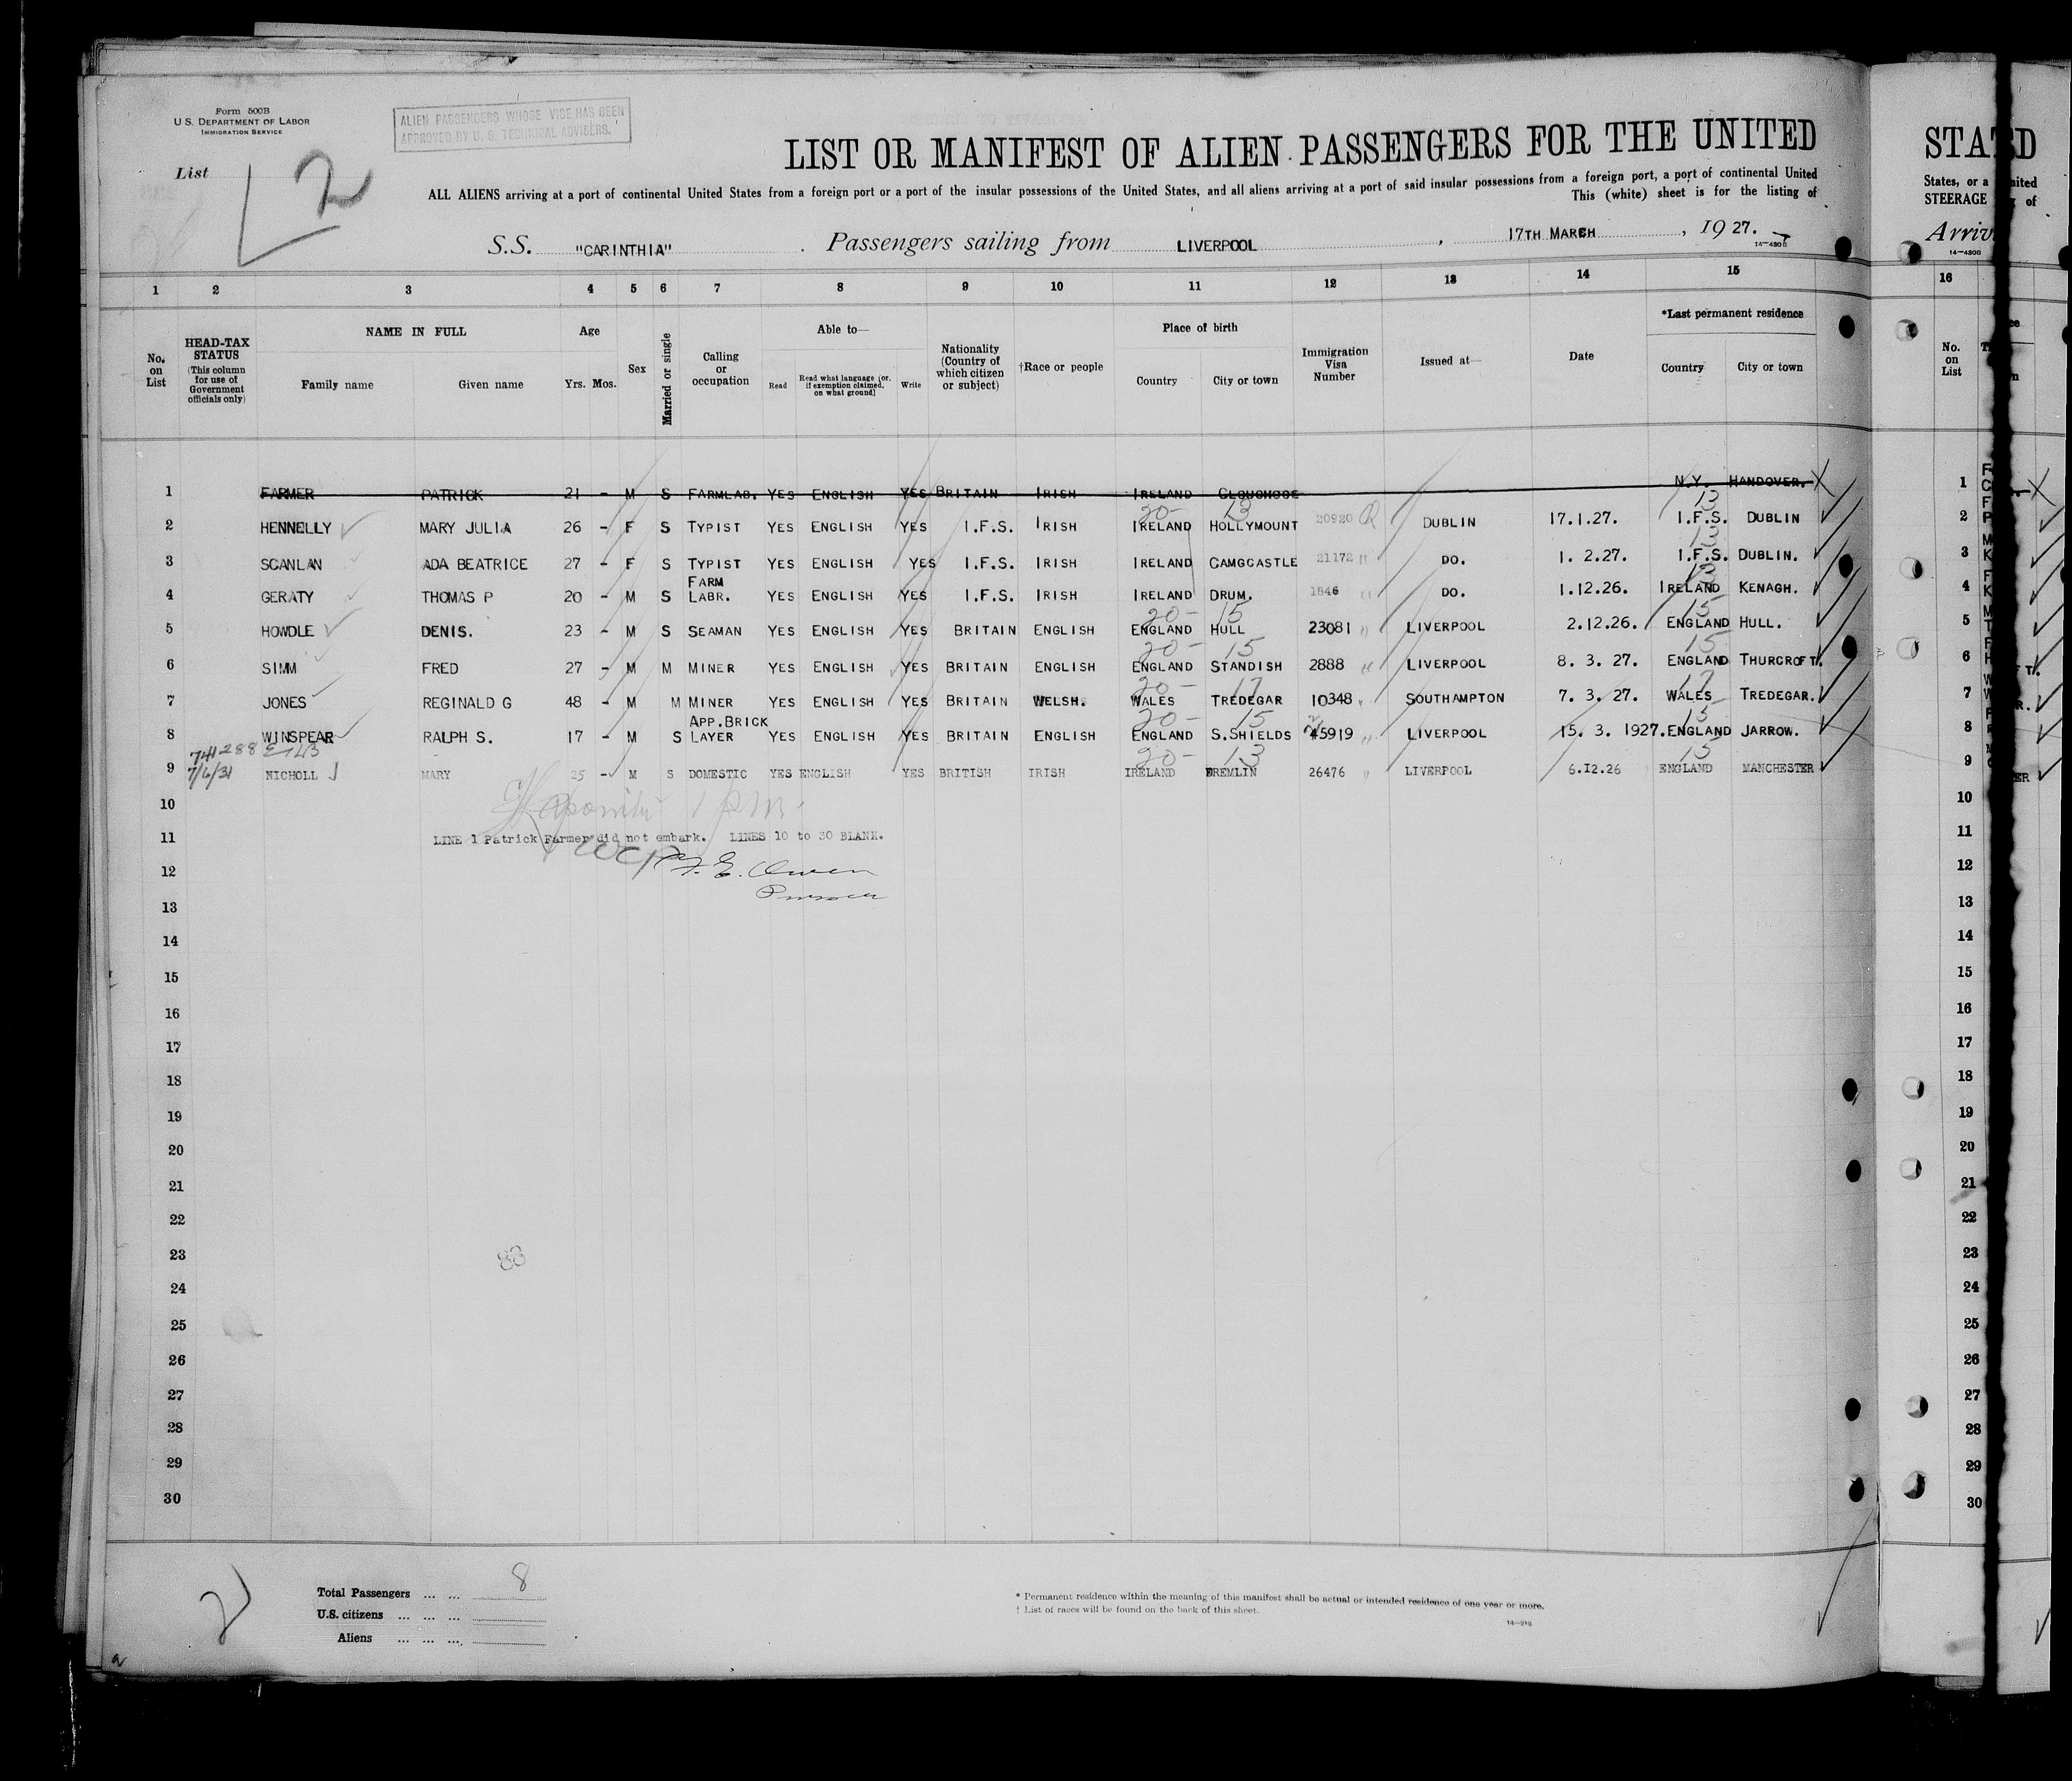 Form 500B
U.S. DEPARTMENT OF LABOR
IMMIGRATION SERVICE
ALIEN PASSENGERS WHOSE VISE HAS BEEN
APPROVED BY U. S. TECHNICAL ADVISERS.
List
2
LIST OR MANIFEST OF ALIEN PASSENGERS FOR THE UNITED
ALL ALIENS arriving at a port of continental United States from a foreign port or a port of the insular possessions of the United States, and all aliens arriving at a port of said insular possessions from a foreign port, a port of continental United
This (white) sheet is for the listing of
S.S. "CARINTHIA" . Passengers sailing from LIVERPOOL , 17TH MARCH , 19 27.
14-430B
1 2 3 4 5 6 7 8 9 10 11 12 13 14 15
No. on List
HEAD-TAX STATUS (This column for use of Government officials only)
NAME IN FULL
Family name Given name
Age
Yrs. Mos.
Sex
Married or single
Calling or occupation
Able to—
Read
Read what language (or, if exemption claimed, on what ground)
Write
Nationality (Country of which citizen or subject)
†Race or people
Place of birth
Country City or town
Immigration Visa Number
Issued at—
Date
*Last permanent residence
Country City or town
1 FARMER PATRICK 21 - M S FARMLAB. YES ENGLISH YES BRITAIN IRISH IRELAND CLOUGHOGE N.Y. HANDOVER. X
20- 13 13
2 HENNELLY MARY JULIA 26 - F S TYPIST YES ENGLISH YES I.F.S. IRISH IRELAND HOLLYMOUNT 20920 DUBLIN 17.1.27. I.F.S. DUBLIN
13
3 SCANLAN ADA BEATRICE 27 - F S TYPIST YES ENGLISH YES I.F.S. IRISH IRELAND CAMGCASTLE 21172 " DO. 1. 2.27. I.F.S. DUBLIN.
13
4 GERATY THOMAS P 20 - M S FARM LABR. YES ENGLISH YES I.F.S. IRISH IRELAND DRUM. 1846 " DO. 1.12.26. IRELAND KENAGH.
20- 15 15
5 HOWDLE DENIS. 23 - M S SEAMAN YES ENGLISH YES BRITAIN ENGLISH ENGLAND HULL 23081 " LIVERPOOL 2.12.26. ENGLAND HULL.
20- 15 15
6 SIMM FRED 27 - M M MINER YES ENGLISH YES BRITAIN ENGLISH ENGLAND STANDISH 2888 " LIVERPOOL 8. 3. 27. ENGLAND THURCROFT.
20- 17 17
7 JONES REGINALD G 48 - M M MINER YES ENGLISH YES BRITAIN WELSH. WALES TREDEGAR 10348 " SOUTHAMPTON 7. 3. 27. WALES TREDEGAR.
20- 15 15
8 WINSPEAR RALPH S. 17 - M S APP.BRICK LAYER YES ENGLISH YES BRITAIN ENGLISH ENGLAND S.SHIELDS 45919 " LIVERPOOL 15. 3. 1927. ENGLAND JARROW.
7/6/31
20- 13 15
9 NICHOLL MARY 25 - M S DOMESTIC YES ENGLISH YES BRITISH IRISH IRELAND DREMLIN 26476 " LIVERPOOL 6.12.26 ENGLAND MANCHESTER
10
11 LINE 1 Patrick Farmer did not embark. LINES 10 to 30 BLANK.
12 Owen
13 Purser
14
15
16
17
18
19
20
21
22
23 83
24
25
26
27
28
29
30
2
Total Passengers ... ... 8
U.S. citizens ... ... ...
Aliens ... ... ...
* Permanent residence within the meaning of this manifest shall be actual or intended residence of one year or more.
† List of races will be found on the back of this sheet.
STAT
States, or a
STEERAGE
Arriv
14-430B
16
No. on List
1
2
3
4
5
6
7
8
9
10
11
12
13
14
15
16
17
18
19
20
21
22
23
24
25
26
27
28
29
30